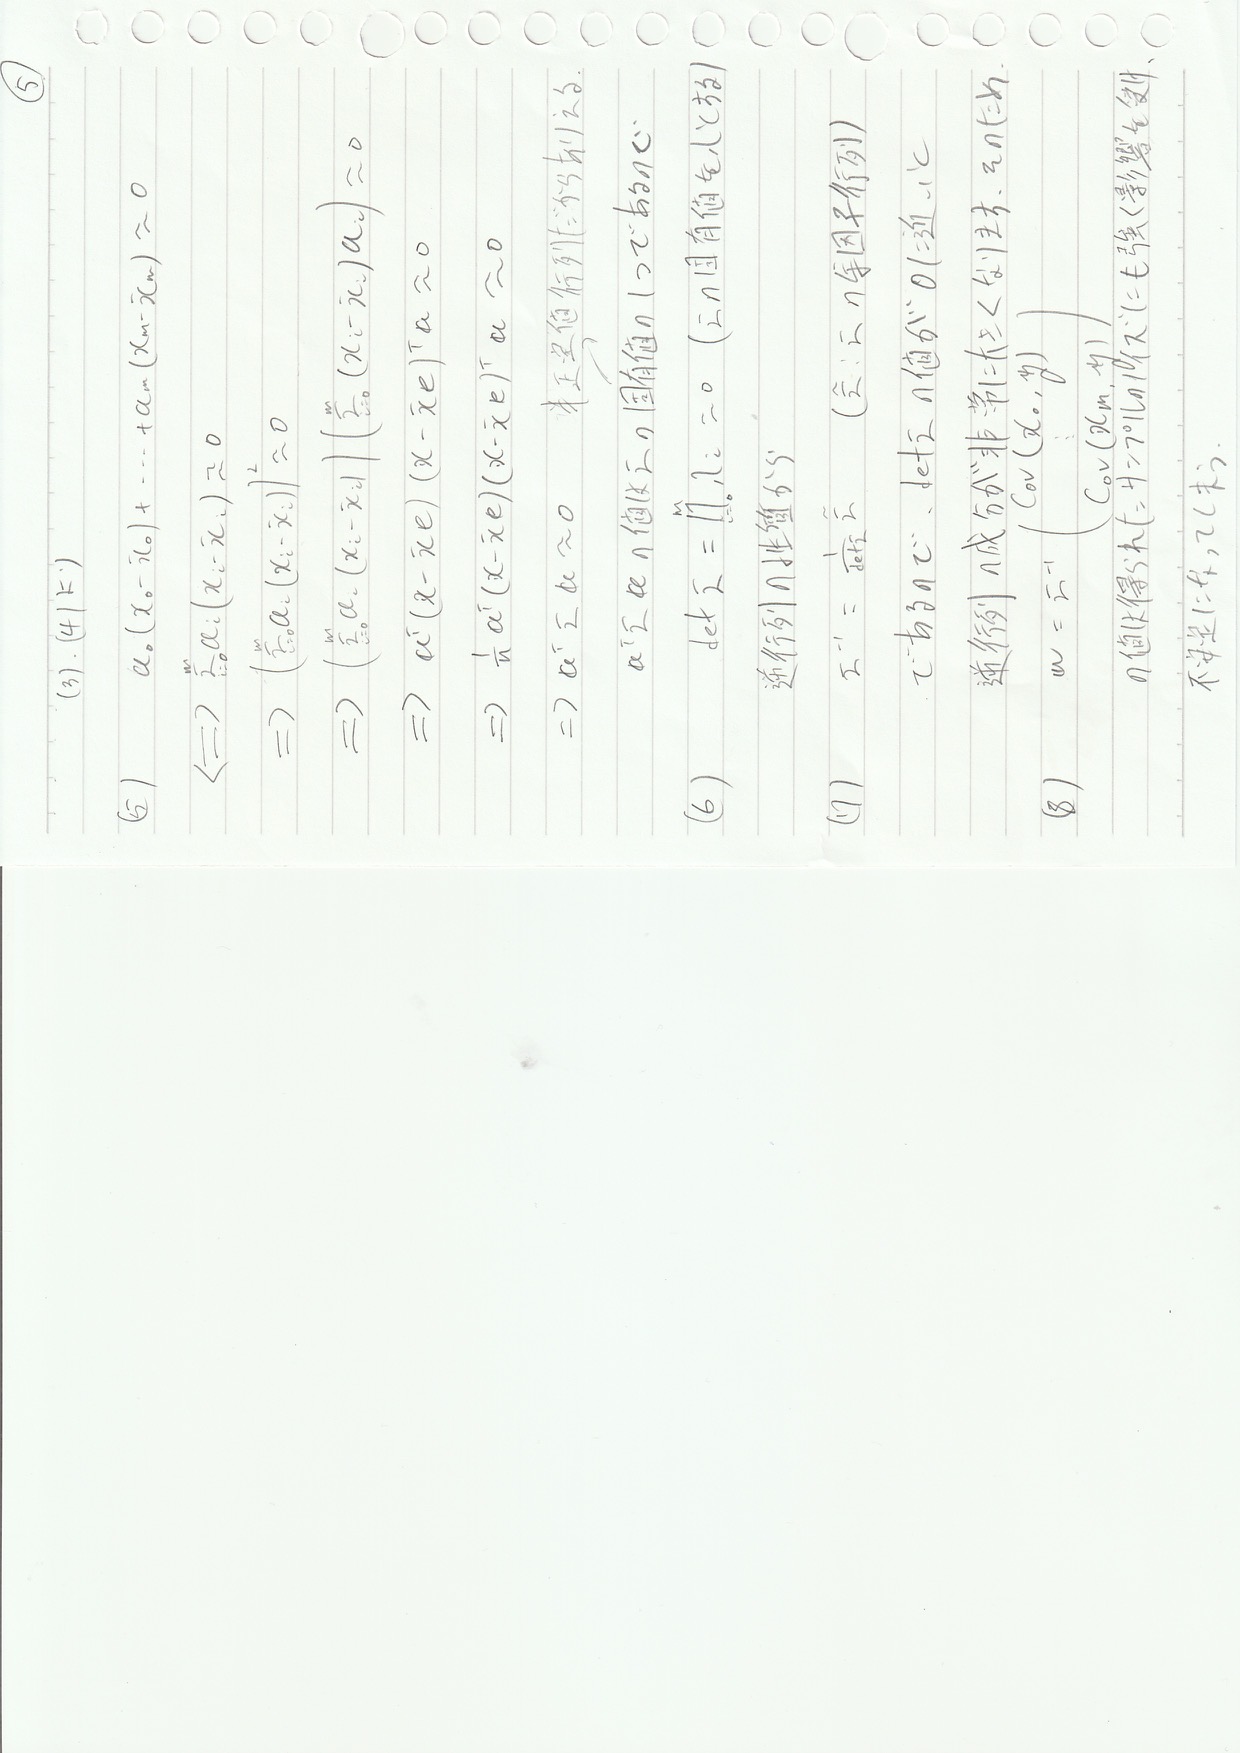 ⑤
(3), (4)より
(5) a₀(x₀-x̄₀)+ ---- +aₘ(xₘ-x̄ₘ) ≈ 0
<=> Σ_{i=0}^{m} aᵢ(xᵢ-x̄ᵢ) ≈ 0
=> (Σ_{i=0}^{m} aᵢ(xᵢ-x̄ᵢ))² ≈ 0
=> (Σ_{i=0}^{m} aᵢ(xᵢ-x̄ᵢ)) (Σ_{i=0}^{m} (xᵢ-x̄ᵢ)aᵢ) ≈ 0
=> aᵀ(x-x̄e)(x-x̄e)ᵀa ≈ 0
=> 1/n aᵀ(x-x̄e)(x-x̄e)ᵀa ≈ 0
=> aᵀΣa ≈ 0 半正定値行列だからありえる.
aᵀΣaの値はΣの固有値の1つであるので
(6) det Σ = Π_{i=0}^{m} λᵢ ≈ 0 (Σの固有値をλとする)
逆行列の性質から
(7) Σ⁻¹ = 1/detΣ Σ̃ (Σ̃ : Σの余因子行列)
であるので、detΣの値が0に近いと
逆行列の成分が非常に大きくなります. そのため.
(8) w = Σ⁻¹ (Cov(x₀, y) ⋮ Cov(xₘ, y))
の値は得られたサンプルのノイズにも強く影響を受け、
不安定になってしまう.